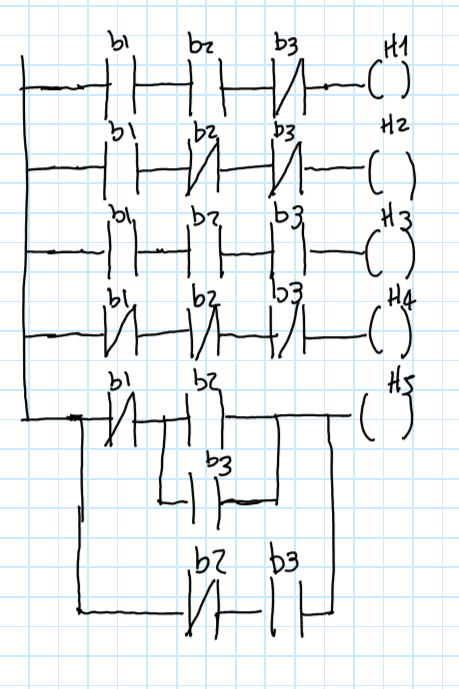 b1 b2 b3 H1
b1 b2 b3 H2
b1 b2 b3 H3
b1 b2 b3 H4
b1 b2 H5
b3
b2 b3